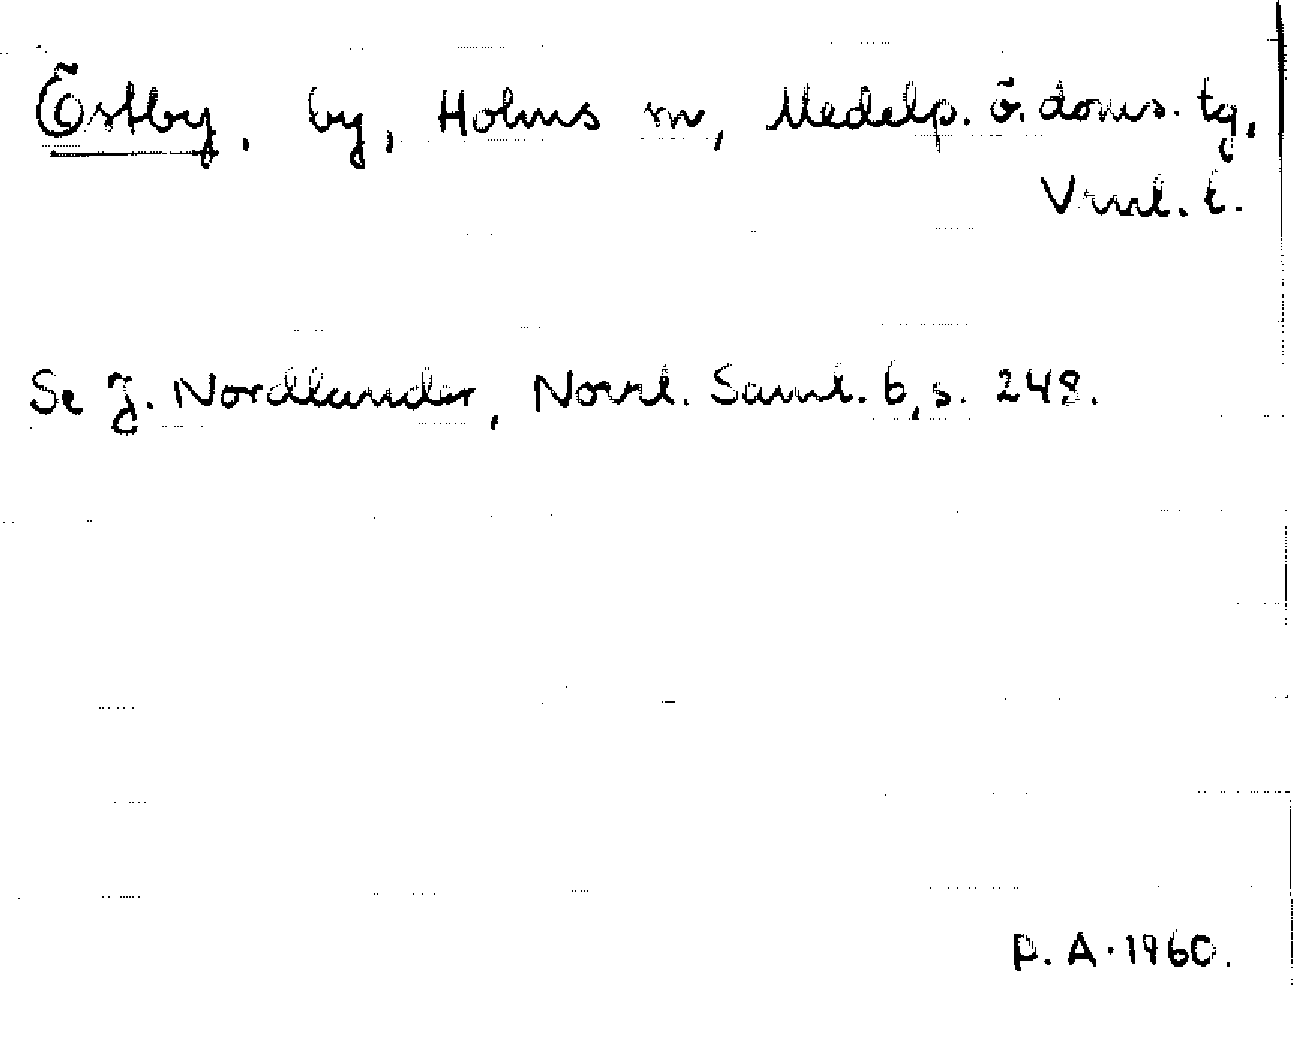 Östby, by, Holms sn, Medelp. ö. doms. tg,
Vrnl. l.
Se J. Nordlander, Norrl. Saml. 6, s. 248.
P. A. 1960.